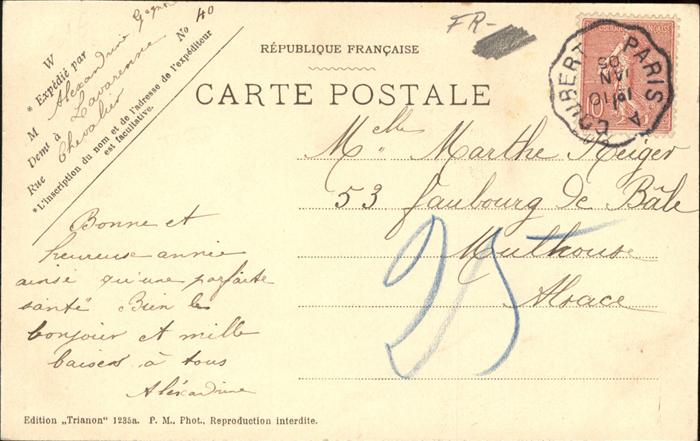 FR-
W
* Expédié par
Alexandrine
No 40
M Lavarenne
Demt à
Rue Chevalier
*L'inscription du nom et de l'adresse de l'expéditeur
est facultative.
RÉPUBLIQUE FRANÇAISE
CARTE POSTALE
PARIS A
COUBERT
10 JAN 05
10
Melle Marthe Reiger
53 faubourg de Bâle
Mulhouse
Alsace
25
Bonne et
heureuse année
ainsi qu'une parfaite
santé Bien le
bonjour et mille
baisers à tous
Alexandrine
Edition „Trianon" 1235a. P. M., Phot., Reproduction interdite.